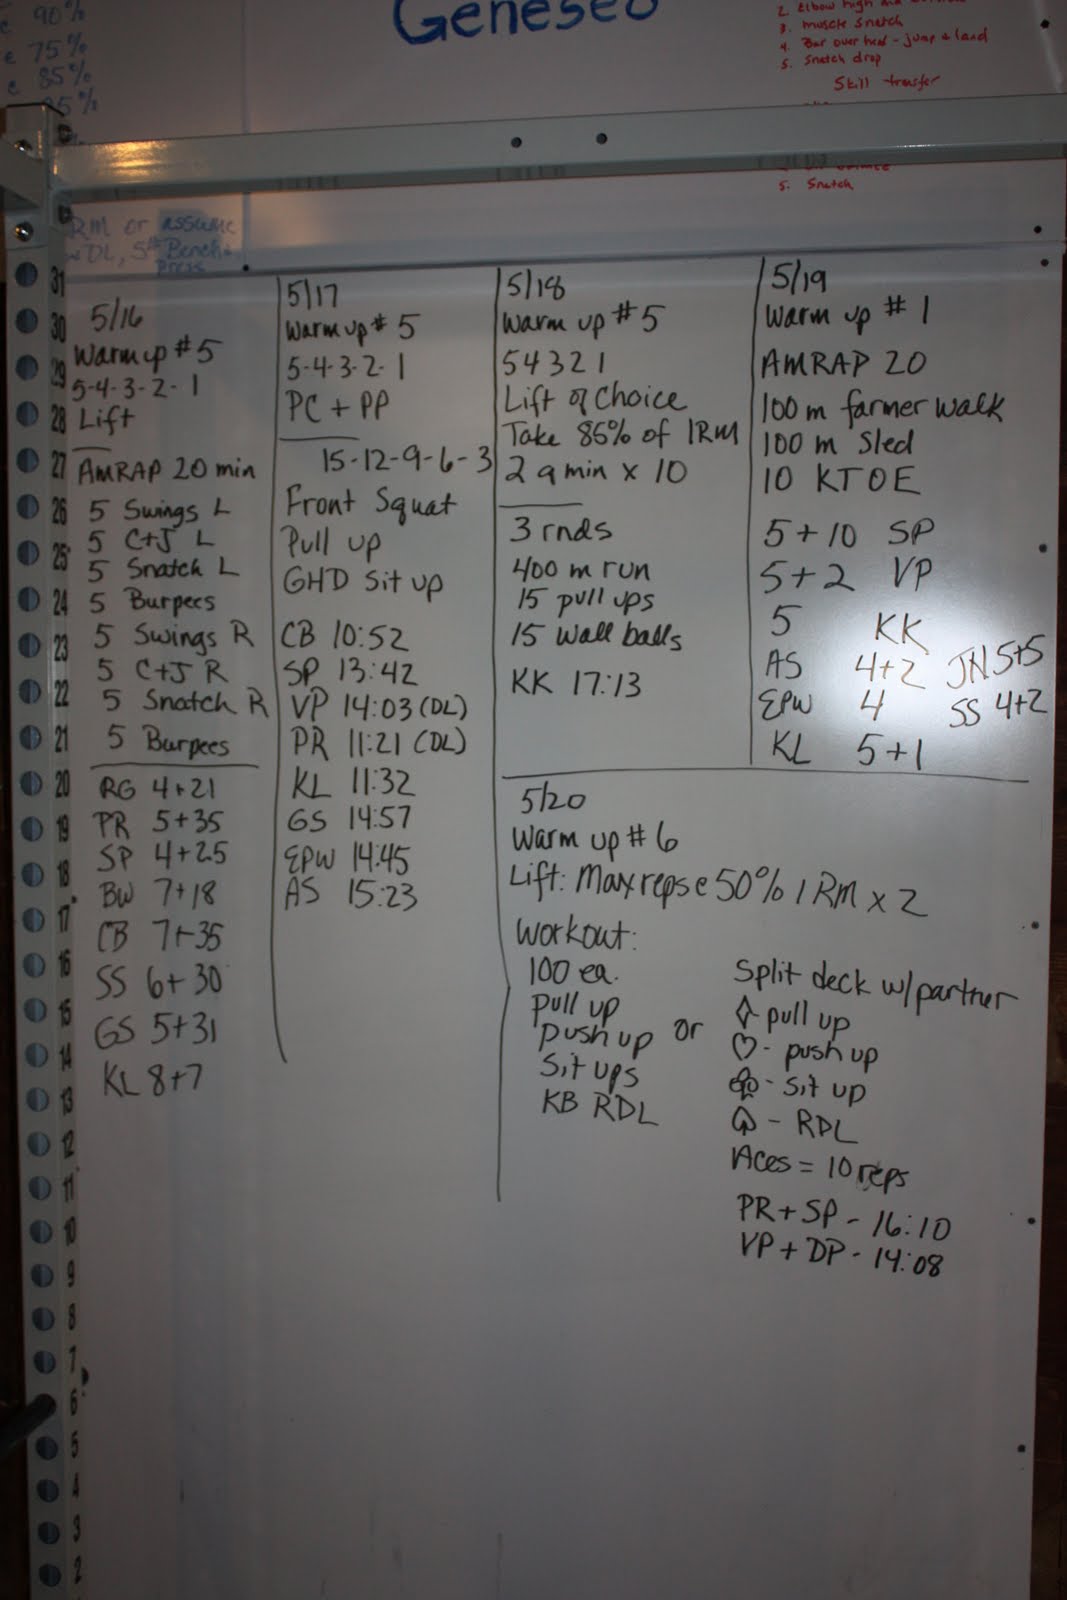 90%
75%
85%
Geneseo
2. Elbow high and
3. muscle snatch
4. Bar over head - jump & land
5. Snatch drop
Skill transfer
5. Snatch
RM or assume
DL, 5th Bench &
press
5/16
Warm up # 5
5-4-3-2-1
Lift
AMRAP 20 min
5 Swings L
5 C+J L
5 Snatch L
5 Burpees
5 Swings R
5 C+J R
5 Snatch R
5 Burpees
RG 4+21
PR 5+35
SP 4+25
BW 7+18
CB 7+35
SS 6+30
GS 5+31
KL 8+7
5/17
Warm up # 5
5-4-3-2-1
PC + PP
15-12-9-6-3
Front Squat
Pull up
GHD Sit up
CB 10:52
SP 13:42
VP 14:03 (DL)
PR 11:21 (DL)
KL 11:32
GS 14:57
EPW 14:45
AS 15:23
5/18
Warm up # 5
5 4 3 2 1
Lift of Choice
Take 85% of 1RM
2 q min x 10
3 rnds
400 m run
15 pull ups
15 wall balls
KK 17:13
5/19
Warm up # 1
AMRAP 20
100 m farmer walk
100 m Sled
10 KTOE
5+10 SP
5+2 VP
5 KK
AS 4+2 JN 5+5
EPW 4 SS 4+2
KL 5+1
5/20
Warm up # 6
Lift: Max reps @ 50% 1RM x 2
Workout:
100 ea.
pull up
push up
Sit ups
KB RDL
or
Split deck w/partner
♢ - pull up
♡ - push up
♧ - sit up
♤ - RDL
Aces = 10 reps
PR + SP - 16:10
VP + DP - 14:08
31
30
29
28
27
26
25
24
23
22
21
20
19
18
17
16
15
14
13
12
11
10
9
8
7
6
5
4
3
2